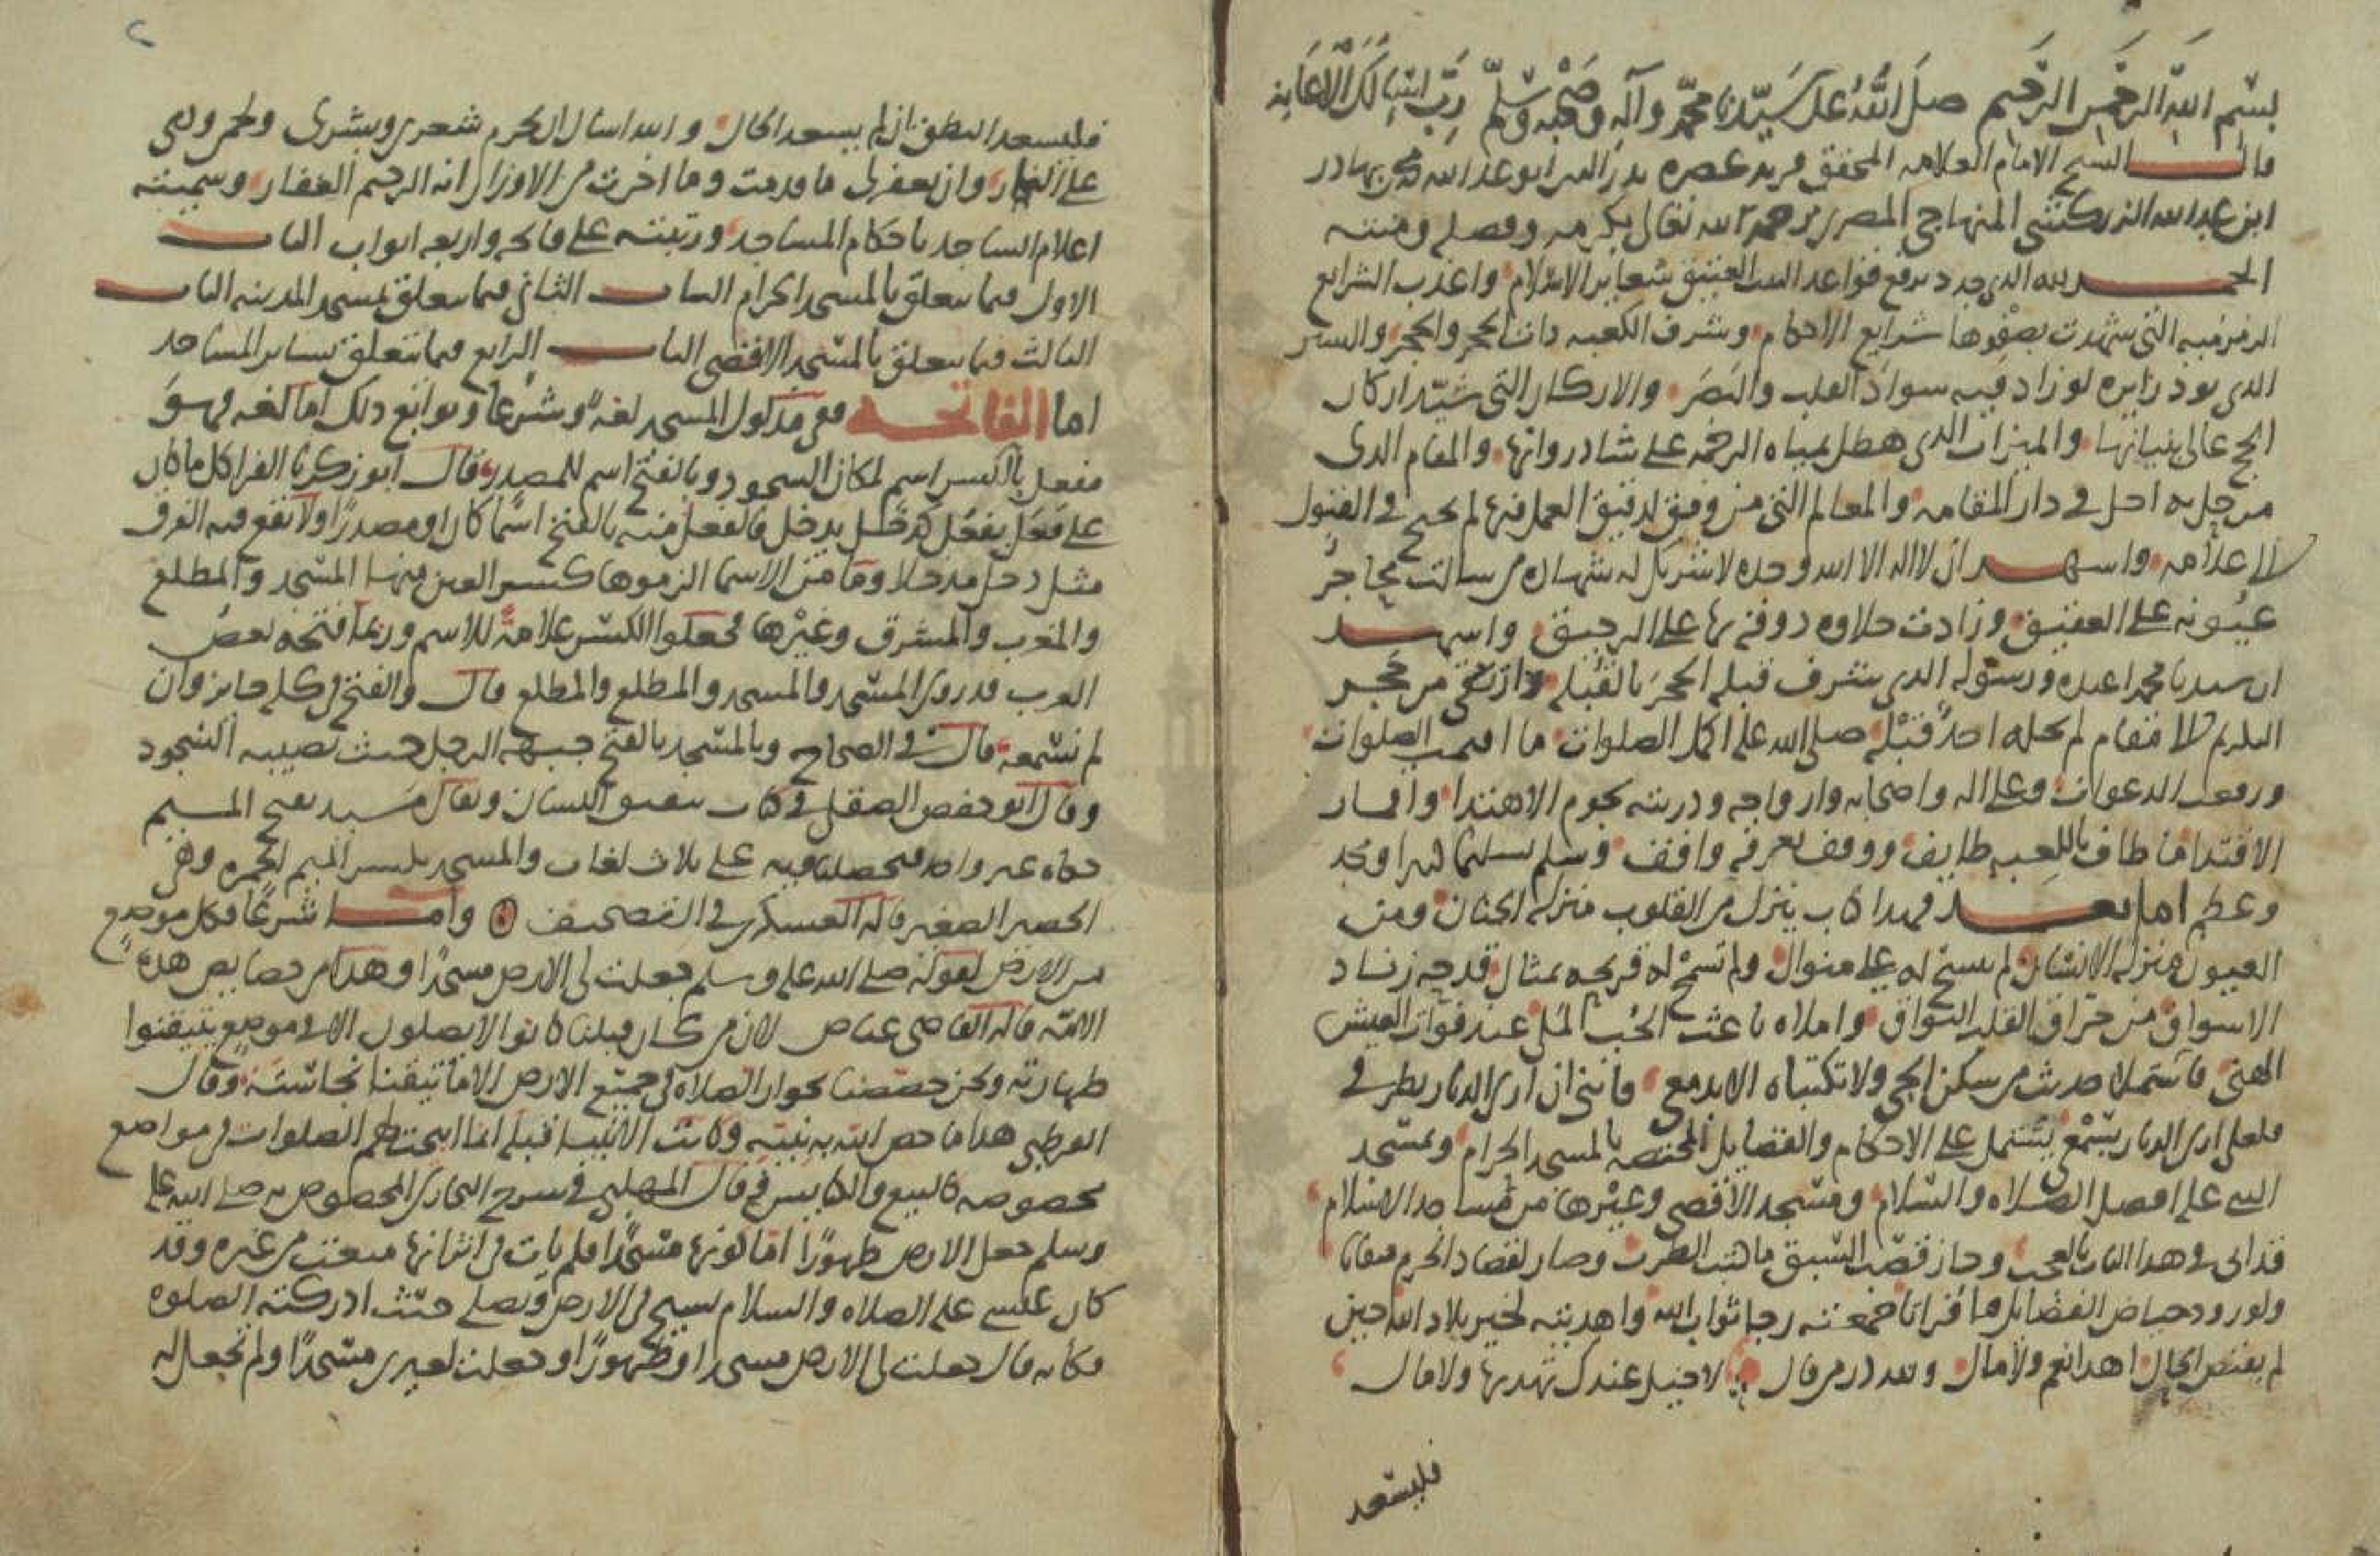 بسم الله الرحمن الرحيم صلى الله على سيدنا محمد وآله وصحبه وسلم رب اني اسالك الاعانه
قال الشيخ الامام العلامه المحقق فريد عصره بدر الدين ابو عبد الله محمد بن بهادر
ابن عبد الله الزركشي المنهاجي المصري رحمه الله تعالى بكرمه وفضله ومنته
الحمد لله الذي جدد برفع قواعد البيت العتيق شعاير الاسلام واعذب الشرايع
الزمزميه التي شهدت بصفوها شرايع الاحكام وشرف الكعبه ذات الحجر والحجر والستر
الذي يود زايره لو زاد فيه سواد القلب والبصر والاركان التي شيد اركان
الحج عالي بنيانها والميزاب الذي هطل بمياه الرحمه على شاذروانها والمقام الذي
من حل به احل في دار المقامه والمعالم التي من وفق لدقيق العمل فيها لم يحتج في القبول
الى علامه واشهد ان لا اله الا الله وحده لا شريك له شهاده من سالت محاجر
عيونه على العقيق وزادت حلاوه ذوقه بها على الرحيق واشهد
ان سيدنا محمدا عبده ورسوله الذي شرف قبله الحجر بالقبله وارتقى من حجر
التكريم الى مقام لم يحله احد قبله صلى الله عليه اكمل الصلوات ما اقيمت الصلوات
ورفعت الدعوات وعلى اله واصحابه وازواجه وذريته نجوم الاهتدا واقمار
الاقتدا ما طاف بالكعبه طايف ووقف بعرفه واقف وسلم تسليما كثيرا ومجد
وعظم اما بعد فهذا كتاب ينزل من القلوب منزله الجنان ومن
العيون منزله الانسان لم ينسج له على منوال ولم تسمح له قريحه بمثال قدحه زناد
الاشواق من حراق القلب التواق واملاه باعث الحب الملي عند فوات العيش
الهني فاستملا حديث من سكن الحمى ولا تكتباه الا بدمعي فاتني ان ارى الديار بطرفي
فلعلي ارى الديار بسمعي يشتمل على الاحكام والفضايل المختصه بالمسجد الحرام ومسجد
النبي عليه افضل الصلاه والسلام ومسجد الاقصى وغيرها من مساجد الاسلام
قد اتى في هذا الباب بالعجب وحاز قصب السبق ما هبت الطرب وصار لقصاد الحرم مقاما
ولورود حياض الفضايل ها قرانا جمعته رجا ثواب الله واهديته لخير بلاد الله حين
لم يقتض الحال اهدا نعم ولا مال ولله در من قال لا خيل عندك تهديها ولا مال
فليسعد
فليسعد النطق ان لم يسعد الحال والله اسال ان يحرم شعري وبشري ولحمي ودمي
على النار وان يغفر لي ما قدمت وما اخرت من الاوزار انه الرحيم الغفار وسميته
اعلام الساجد باحكام المساجد ورتبته على فاتحه واربعه ابواب الباب
الاول فيما يتعلق بالمسجد الحرام الباب الثاني فيما يتعلق بمسجد المدينه الباب
الثالث فيما يتعلق بالمسجد الاقصى الباب الرابع فيما يتعلق بساير المساجد
اما الفاتحه ففي مدلول المسجد لغة وشرعا وتوابع ذلك اما لغه فهو
مفعل بالكسر اسم لمكان السجود وبالفتح اسم للمصدر قال ابو زكريا الفرا كل ما كان
على فعل يفعل كدخل يدخل فالمفعل منه بالفتح اسما كان او مصدرا ولا يقع فيه الفرق
مثل دخل مدخلا وما من الاسما الزموها كسر العين منها المسجد والمطلع
والمغرب والمشرق وغيرها فجعلوا الكسر علامة للاسم وربما فتحه بعض
العرب قد روي المسجد والمسجد والمطلع والمطلع قال والفتح في كله جايز وان
لم نسمعه قال في الصحاح وبالمسجد بالفتح جبهه الرجل حيث يصيبه السجود
وقال ابو حفص الصقلي في كتاب تثقيف اللسان ويقال مسيد بفتح الميم
حكاه غير واحد فتحصلنا فيه على ثلاث لغات والمسجد بكسر الميم الخمره وهي
الحصير الصغير قاله العسكري في التصحيف واما شرعا فكل موضع
من الارض لقوله صلى الله عليه وسلم جعلت لي الارض مسجدا وهذا من خصايص هذه
الامه قاله القاضي عياض لان من كان قبلنا كانوا لا يصلون الا في موضع يتيقنوا
طهارته ونحن خصصنا بجواز الصلاه في جميع الارض الا ما تيقنا نجاسته وقال
القرطبي هذا ما خص الله به نبيه وكانت الانبيا قبله انما ابيحت لهم الصلوات في مواضع
مخصوصه كالبيع والكنايس في قال المهلب في شرح البخاري المخصوص به صلى الله عليه
وسلم جعل الارض طهورا اما كونها مسجدا فلم يات في اثر انها منعت من غيره وقد
كان عيسى عليه الصلاه والسلام يسيح في الارض ويصلي حيث ادركته الصلوه
فكانه قال جعلت لي الارض مسجدا وطهورا وجعلت لغيري مسجدا ولم تجعل له